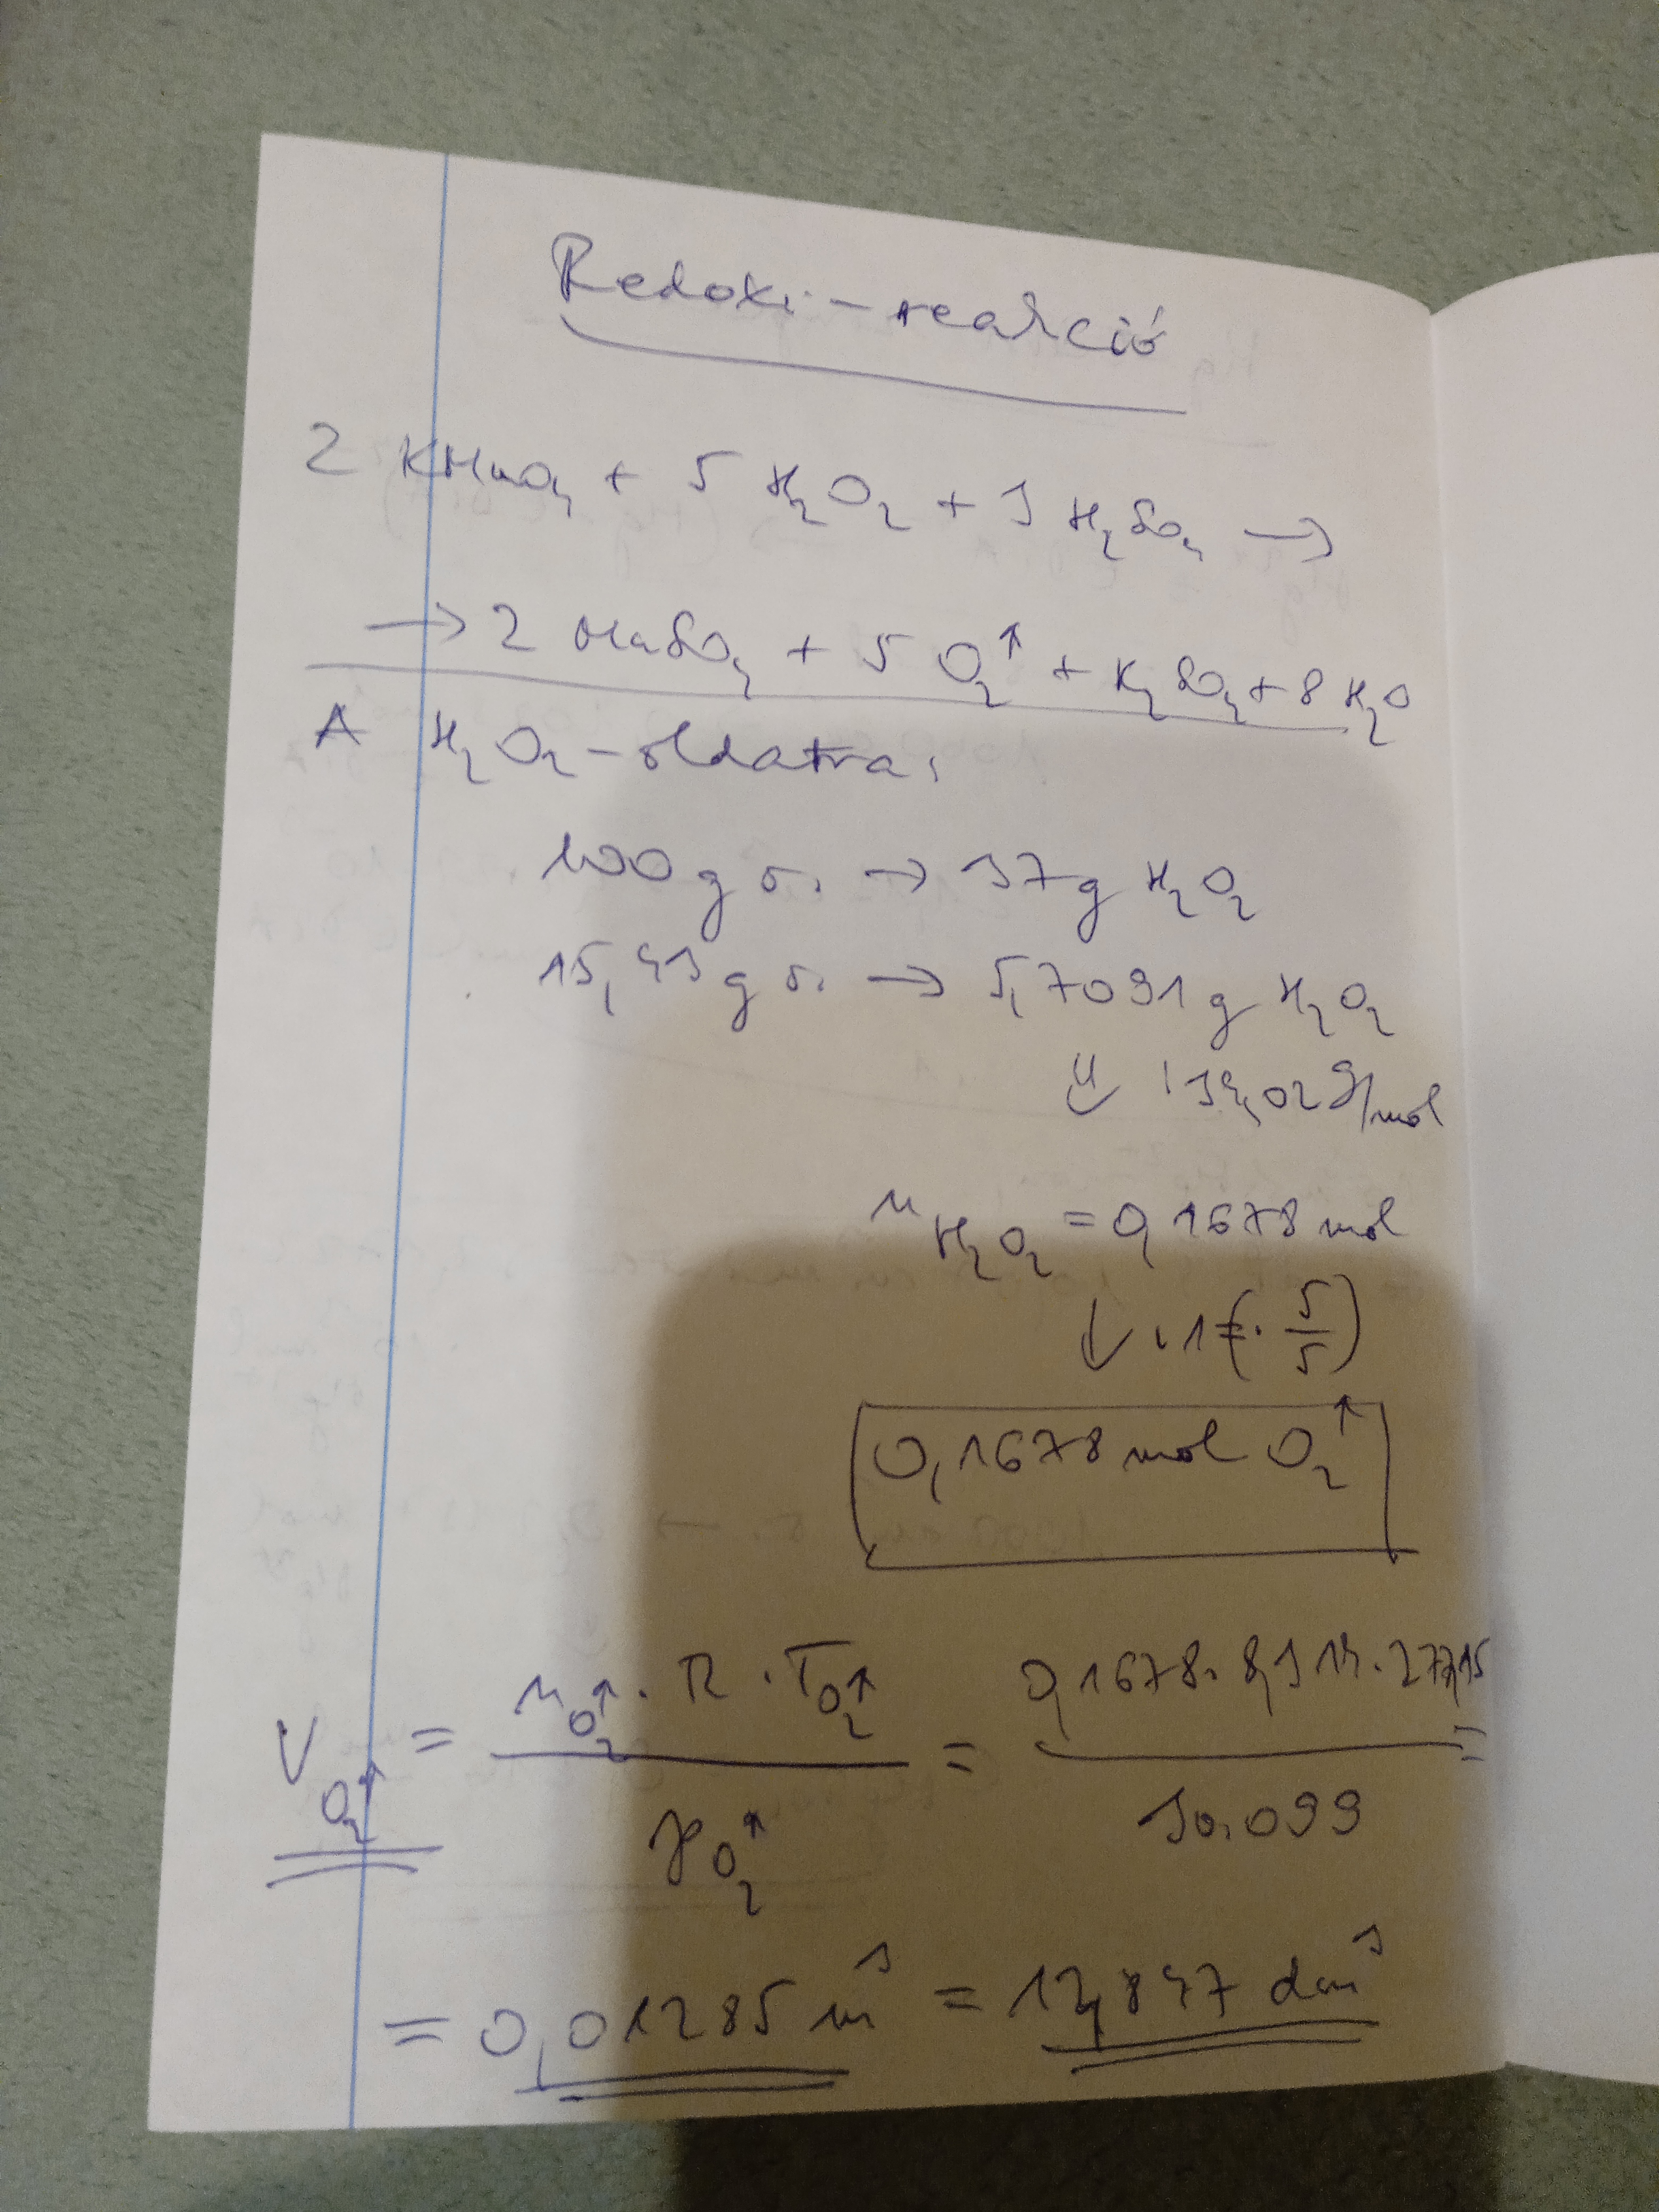 Redoxi-reakció
2 KMnO₄ + 5 H₂O₂ + 3 H₂SO₄ →
→ 2 MnSO₄ + 5 O₂↑ + K₂SO₄ + 8 H₂O
A H₂O₂-oldatra:
100 g o. → 37 g H₂O₂
15,43 g o. → 5,7091 g H₂O₂
⇓ : 34,02 g/mol
n H₂O₂ = 0,1678 mol
↓ · 1 (= · 5/5)
0,1678 mol O₂↑
V O₂↑ = n O₂↑ · R · T O₂↑ / p O₂↑ = 0,1678 · 8,314 · 277,15 / 30.099 =
= 0,01285 m³ = 12,847 dm³